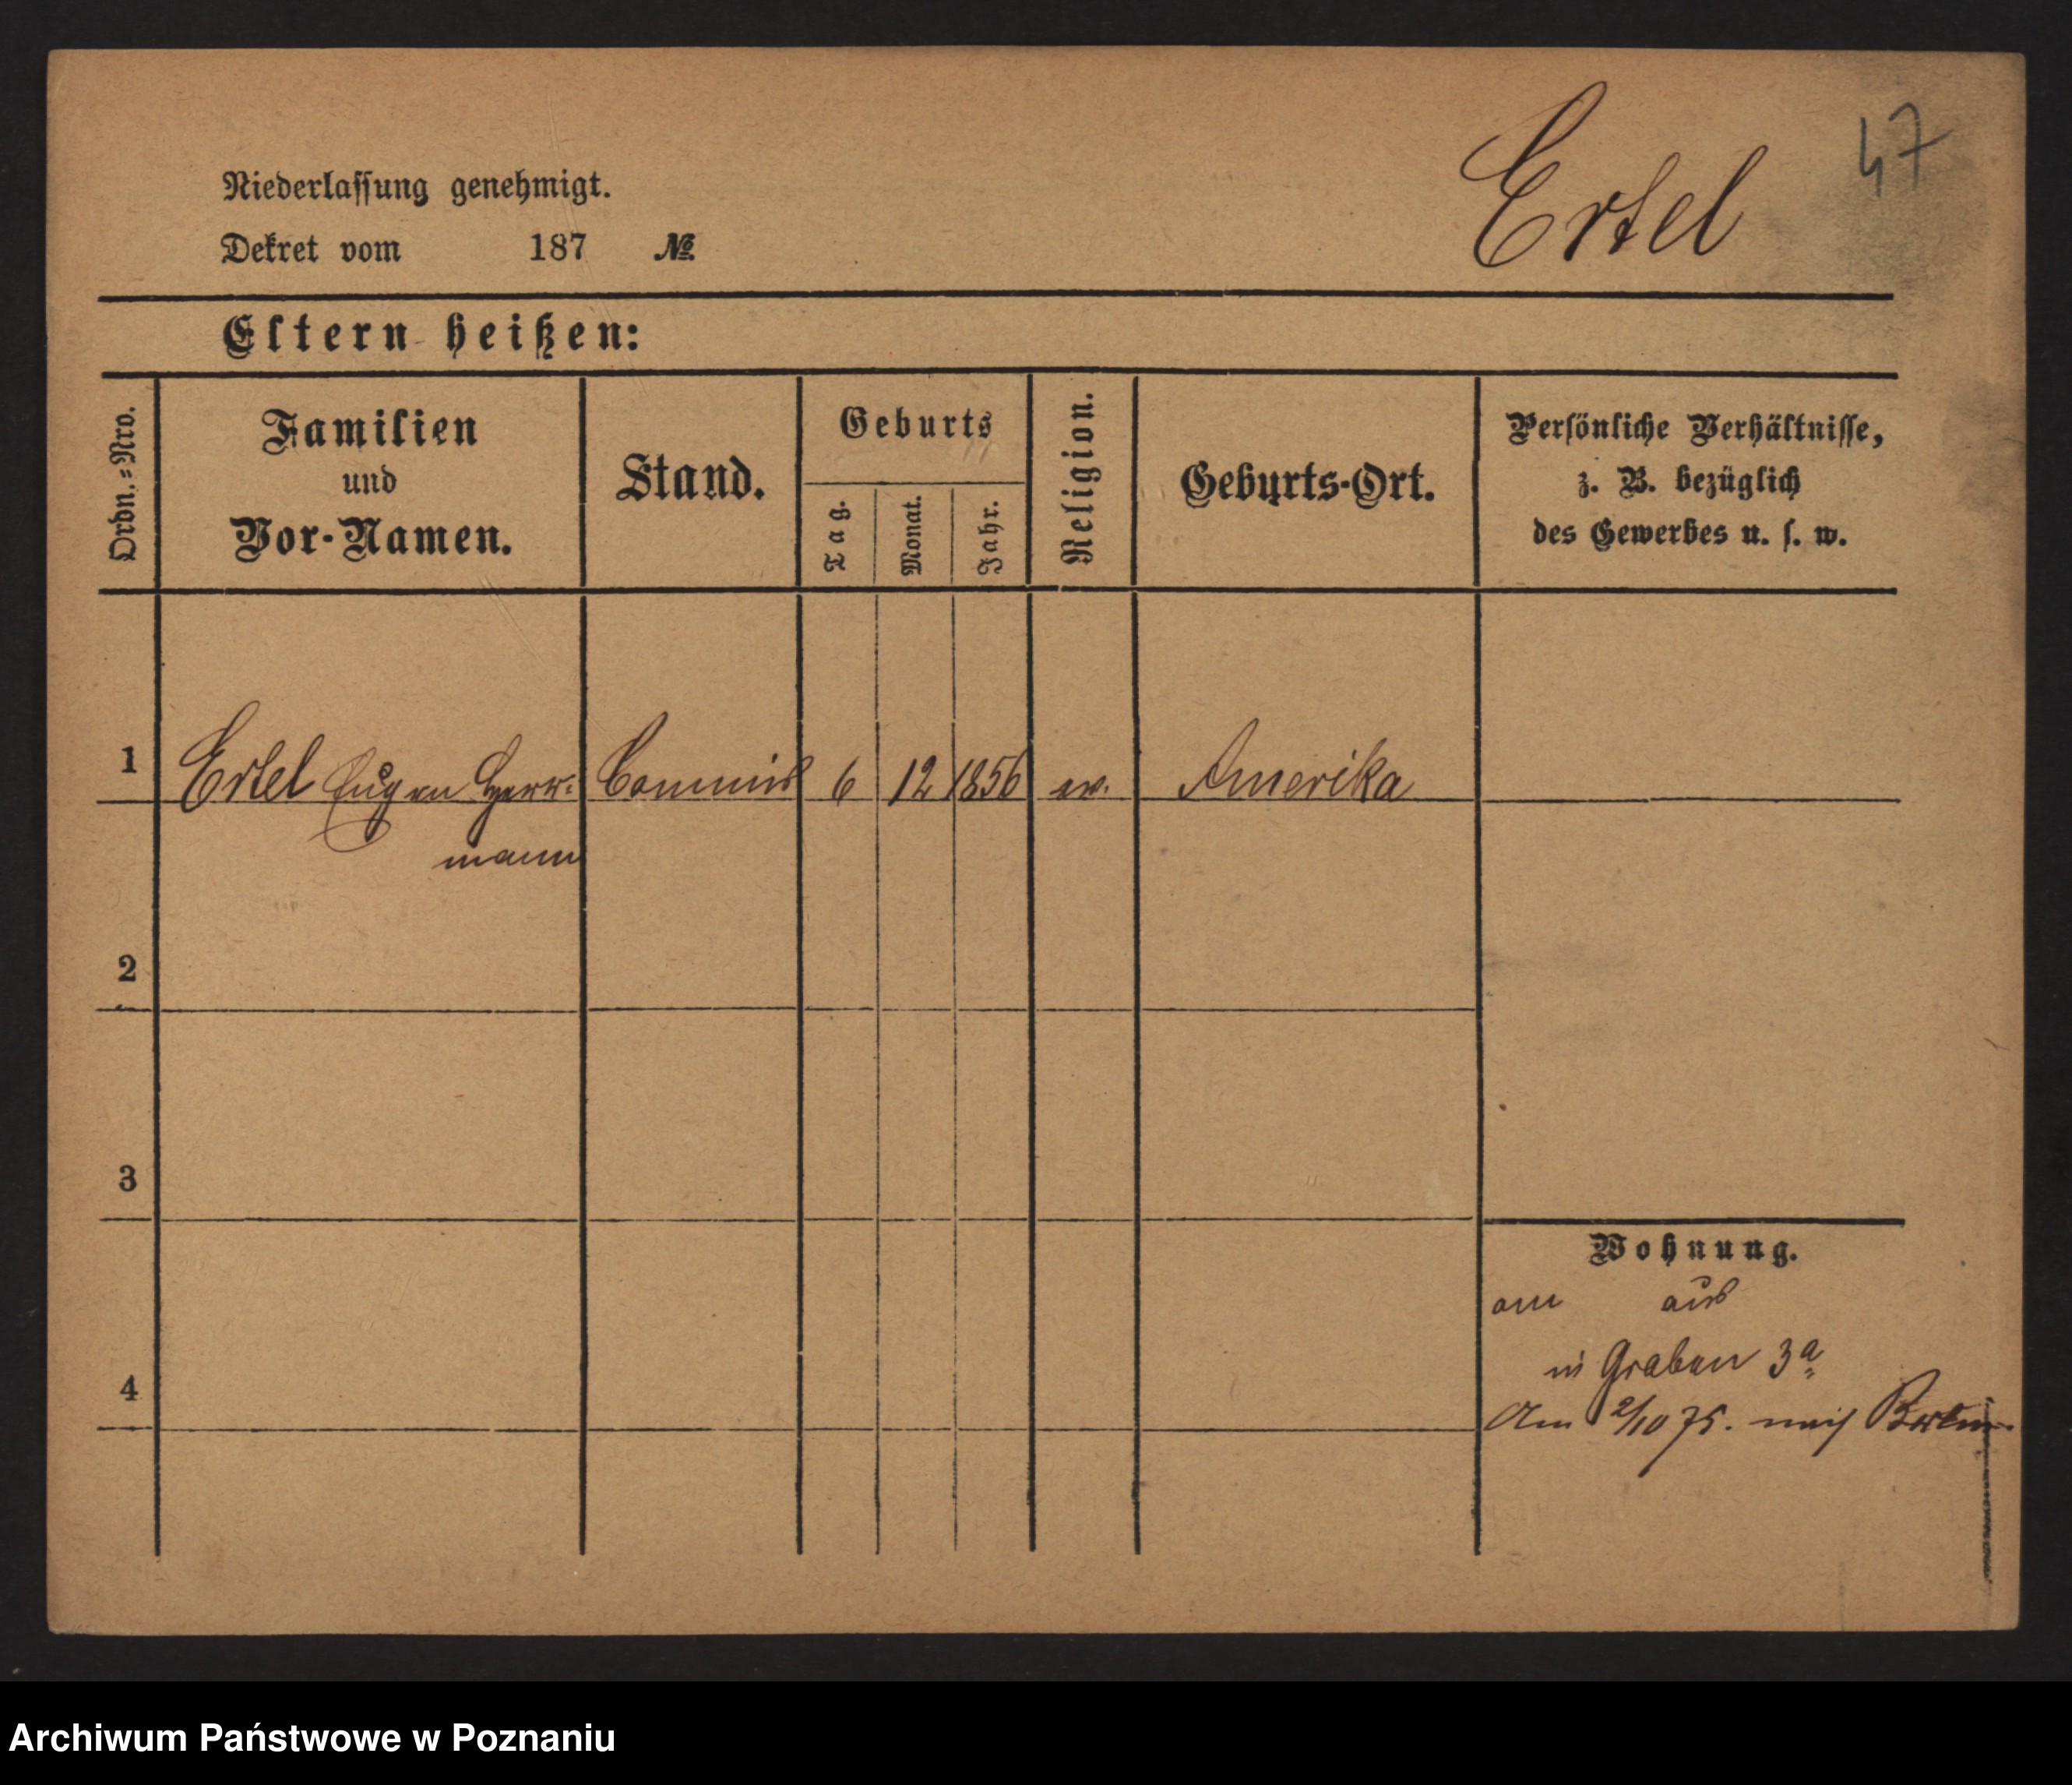 47
Ertel
Niederlassung genehmigt.
Dekret vom 187 №
Eltern heißen:
Ordn.=Nro.
Familien
und
Vor-Namen.
Stand.
Geburts
Tag.
Monat.
Jahr.
Religion.
Geburts-Ort.
Persönliche Verhältnisse,
z. B. bezüglich
des Gewerbes u. s. w.
1 Ertel Eugen Herr= Commis 6 12 1856 ev. Amerika
mann
2
3
Wohnung.
am aus
in Graben 3a
4
Am 2/10 75. nach Berlin.
Archiwum Państwowe w Poznaniu